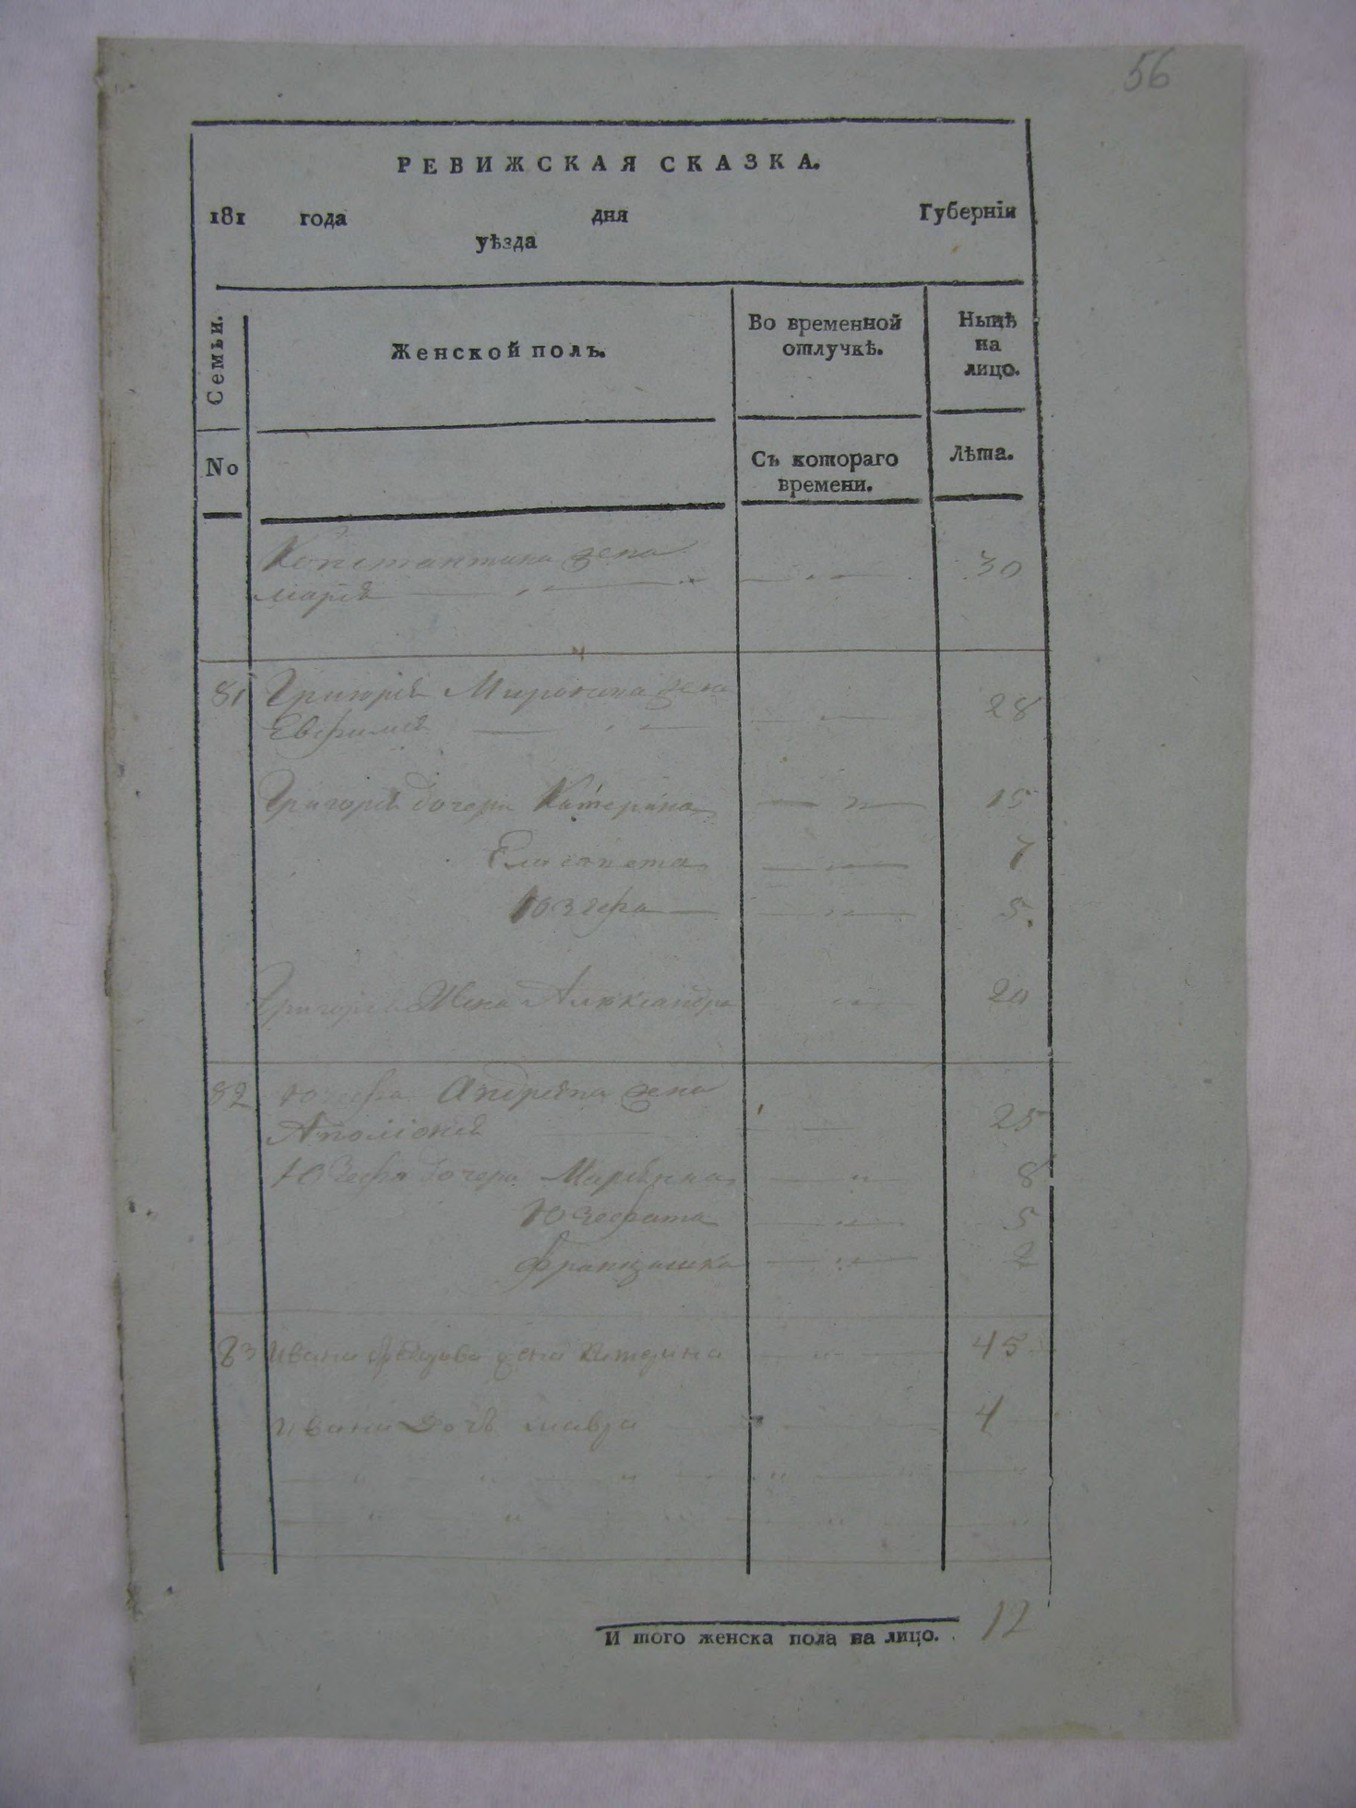 56
РЕВИЖСКАЯ СКАЗКА.
181 года дня Губернїи
уѣзда
Семьи. Женской полъ. Во временной отлучкѣ. Нынѣ на лицо.
No Съ котораго времени. Лѣта.
Константина жена
Марїя 30
81 Григорїя Миронича жена
Евфимїя 28
Григорїя дочери Катерина 15
Елисавета 7
Юзефа 5.
Григорїя Жена Александра 20
82 Юзефа Андрѣева жена
Аполонїя 25
Юзефа дочери Марьяна 8
Юзефата 5
Францишка 2
83 Ивана жена Катерина 45
Ивана дочь Мавра 4
И того женска пола на лицо. 12